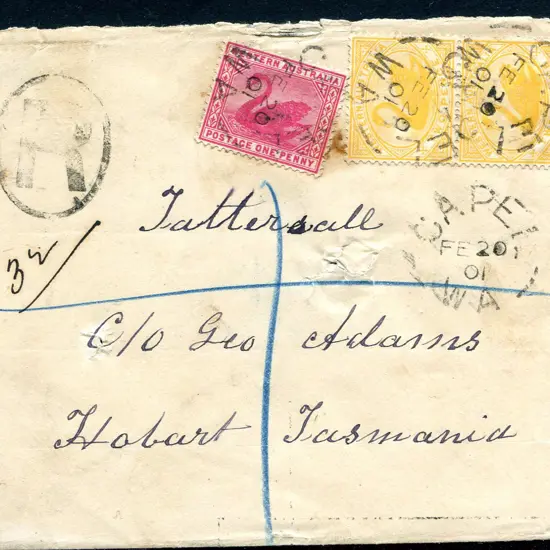 WESTERN AUSTRALIA
POSTAGE ONE PENNY
R
CAPEL
FE 20
01
W A
Tattersall
32/
C/o Geo Adams
Hobart Tasmania